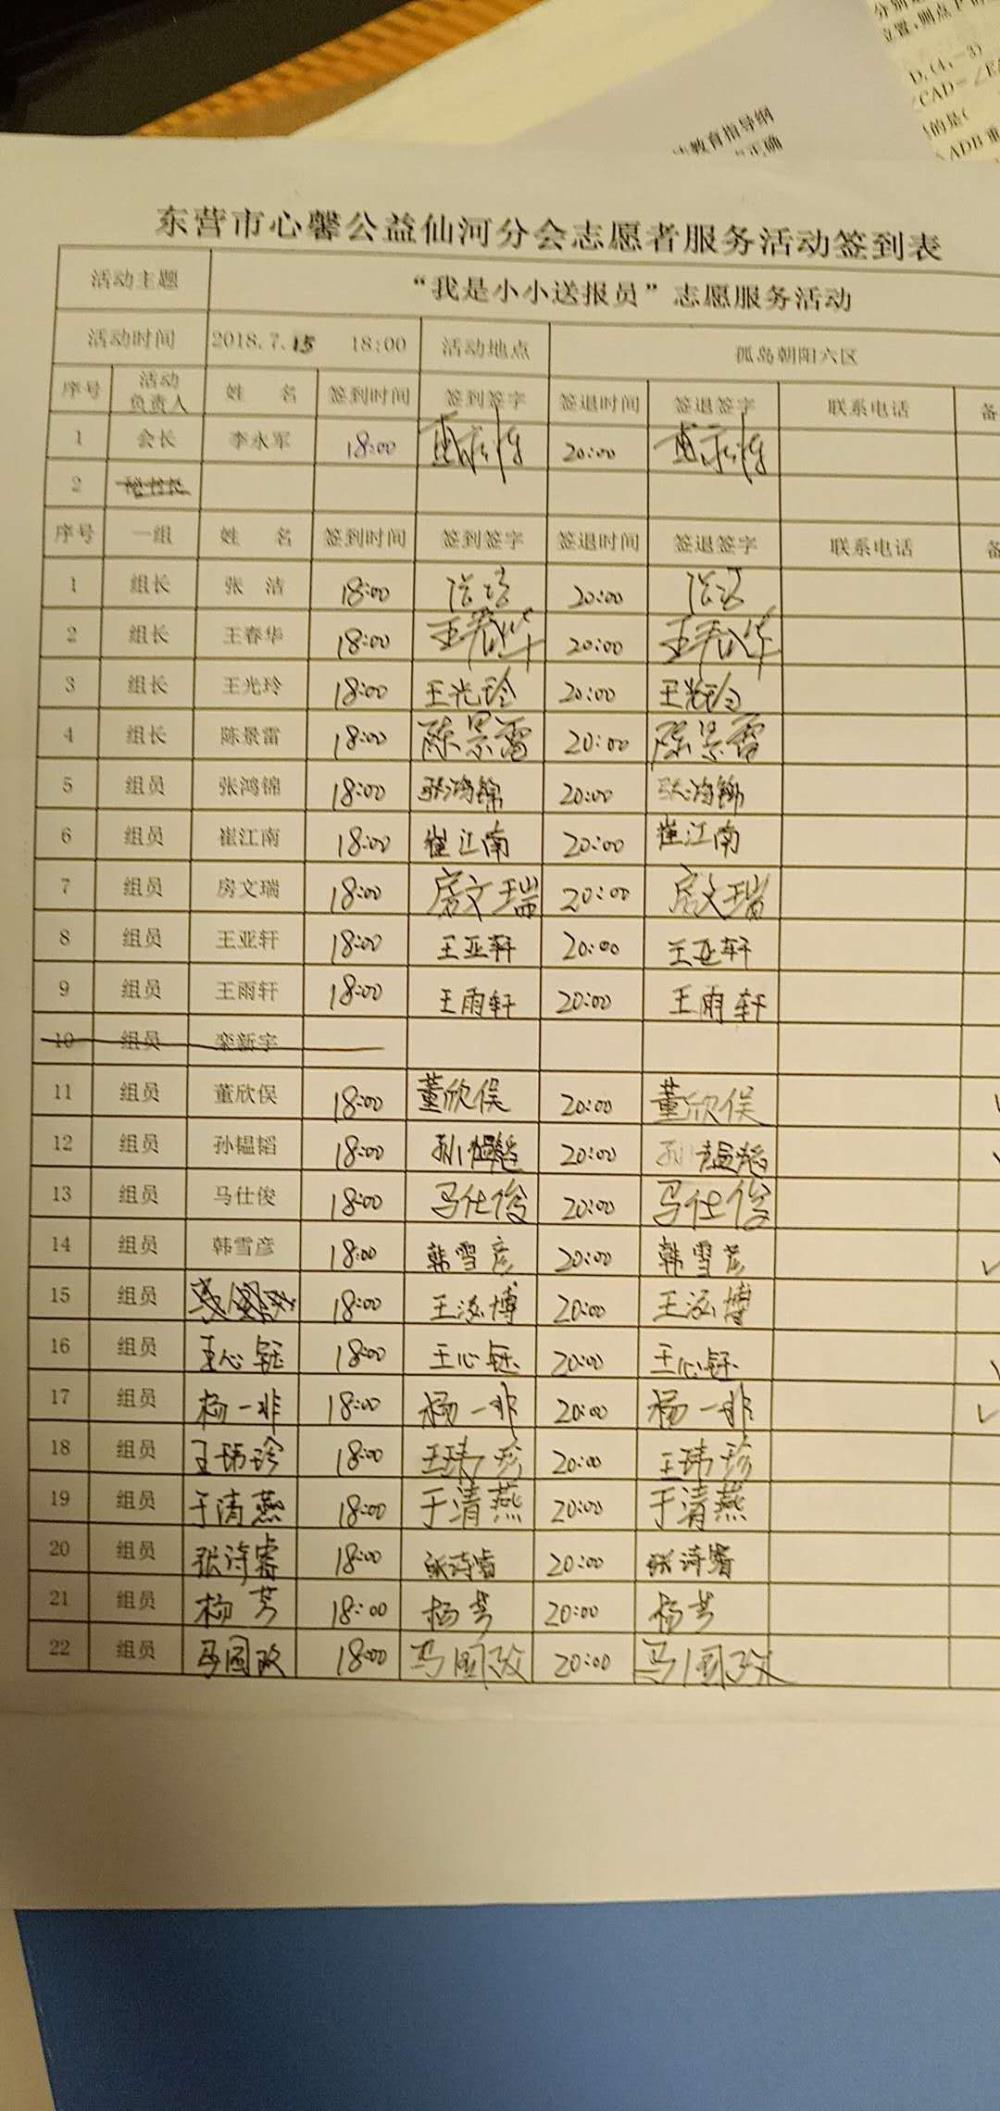 分别是
位置,则点P的
D.(4,-3)
∠CAD=∠EA
的是(
ADB 重
教育指导纲
正确
东营市心馨公益仙河分会志愿者服务活动签到表
活动主题 “我是小小送报员”志愿服务活动
活动时间 2018.7.15 18:00 活动地点 孤岛朝阳六区
序号 活动负责人 姓 名 签到时间 签到签字 签退时间 签退签字 联系电话 备
1 会长 李永军 18:00 20:00
2
序号 一组 姓 名 签到时间 签到签字 签退时间 签退签字 联系电话 备
1 组长 张 洁 18:00 张洁 20:00 张洁
2 组长 王春华 18:00 王春华 20:00 王春华
3 组长 王光玲 18:00 王光玲 20:00 王光玲
4 组长 陈景雷 18:00 陈景雷 20:00 陈景雷
5 组员 张鸿锦 18:00 张鸿锦 20:00 张鸿锦
6 组员 崔江南 18:00 崔江南 20:00 崔江南
7 组员 房文瑞 18:00 房文瑞 20:00 房文瑞
8 组员 王亚轩 18:00 王亚轩 20:00 王亚轩
9 组员 王雨轩 18:00 王雨轩 20:00 王雨轩
10 组员 栾新宇
11 组员 董欣俣 18:00 董欣俣 20:00 董欣俣
12 组员 孙韫韬 18:00 孙韫韬 20:00 孙韫韬
13 组员 马仕俊 18:00 马仕俊 20:00 马仕俊
14 组员 韩雪彦 18:00 韩雪彦 20:00 韩雪彦 ✓
15 组员 18:00 20:00
16 组员 王心钰 18:00 王心钰 20:00 王心钰
17 组员 杨一非 18:00 杨一非 20:00 杨一非 ✓
18 组员 王玮珍 18:00 王玮珍 20:00 王玮珍
19 组员 于清燕 18:00 于清燕 20:00 于清燕
20 组员 张诗睿 18:00 张诗睿 20:00 张诗睿
21 组员 杨芳 18:00 杨芳 20:00 杨芳
22 组员 马国政 18:00 马国政 20:00 马国政